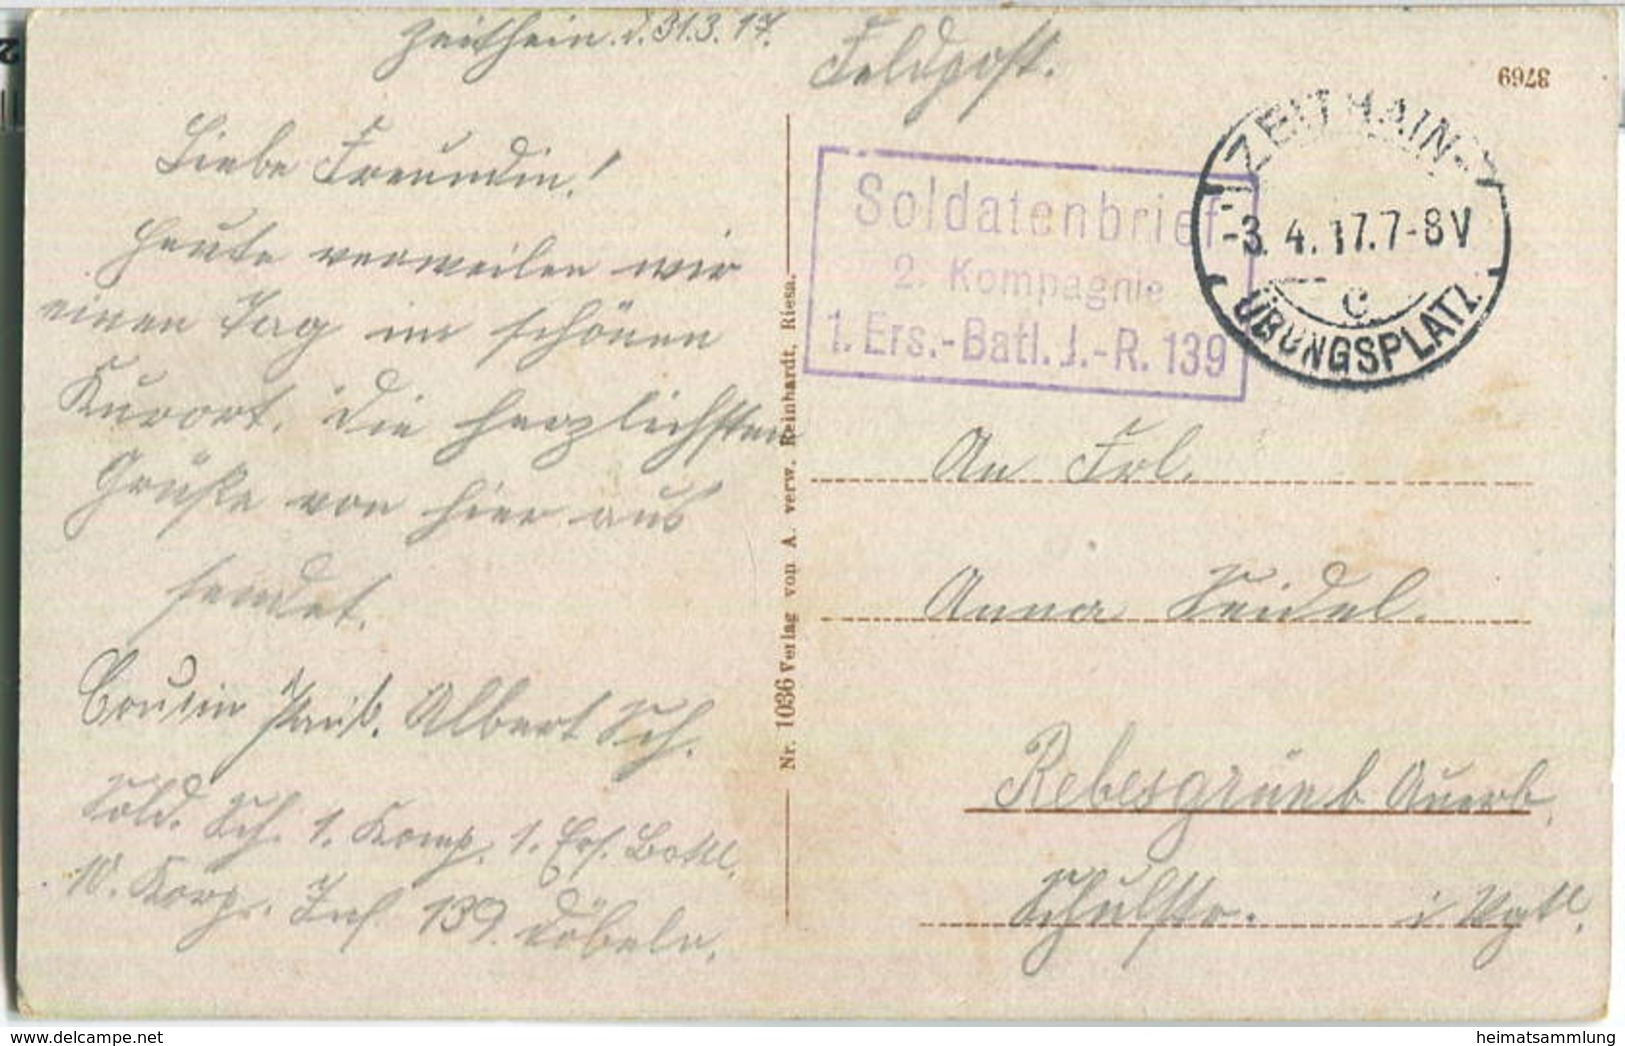 Zeithein. d. 31.3.17.
Liebe Freundin!
Heute verweilen wir
einen Tag im schönen
Kurort. Die herzlichsten
Grüße von hier aus
sendet.
Cousin Albert Sch.
Sold. Sch. 1. Komp. 1. Ers. Batl.
10. Korp. Inf. 139. Döbeln.
Nr. 1036 Verlag von A. verw. Reinhardt, Riesa.
Feldpost.
3769
Soldatenbrief
2. Kompagnie
1. Ers.-Batl. J.-R. 139
ZEITHAIN-
-3. 4. 17. 7-8 V
c
ÜBUNGSPLATZ
An Frl.
Anna Seidel.
Rebesgrün b Auerb.
Schulstr. i Vgtl.
delcampe.net
heimatsammlung